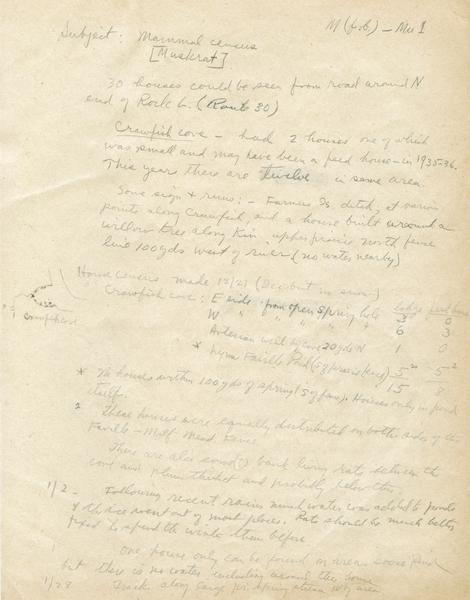 M (f.c.) - Mu 1
Subject: Mammal census
[Muskrat]
30 houses could be seen from road around N
end of Rock L. (Route 30)
Crawfish cove - had 2 houses one of which
was small and may have been a feed house in 1935-36.
This year there are twelve in same area.
Some sign & runs: - Farmers Is. ditch, at various
points along Crawfish, and a house built around a
willow tree along upper prairie north fence
line 100 yds west of river (no water nearby)
House census made 12/21 (Dec but in snow)
Crawfish cove: E side from open Spring hole 3 0
W " " " " " 6 3
Artesian well by cove 20 yds N 1 0
* Lyma Faville Pond (S of prairie fence) 5 5
15 8
crawfish cove
* No houses within 100 yds of spring (S of fence). Houses only in pond
itself.
2 These houses were equally distributed on both sides of the
Faville - Fence
There are also some(?) bank living rats between the
cove and plum thicket and probably below this
1/2 - Following recent rains much water was added to ponds
& the ice went out of most places. Rats should be much better
fixed to spend the winter than before
One house only can be found in area
but there is no water including around the same
1/28 Track along spring stream